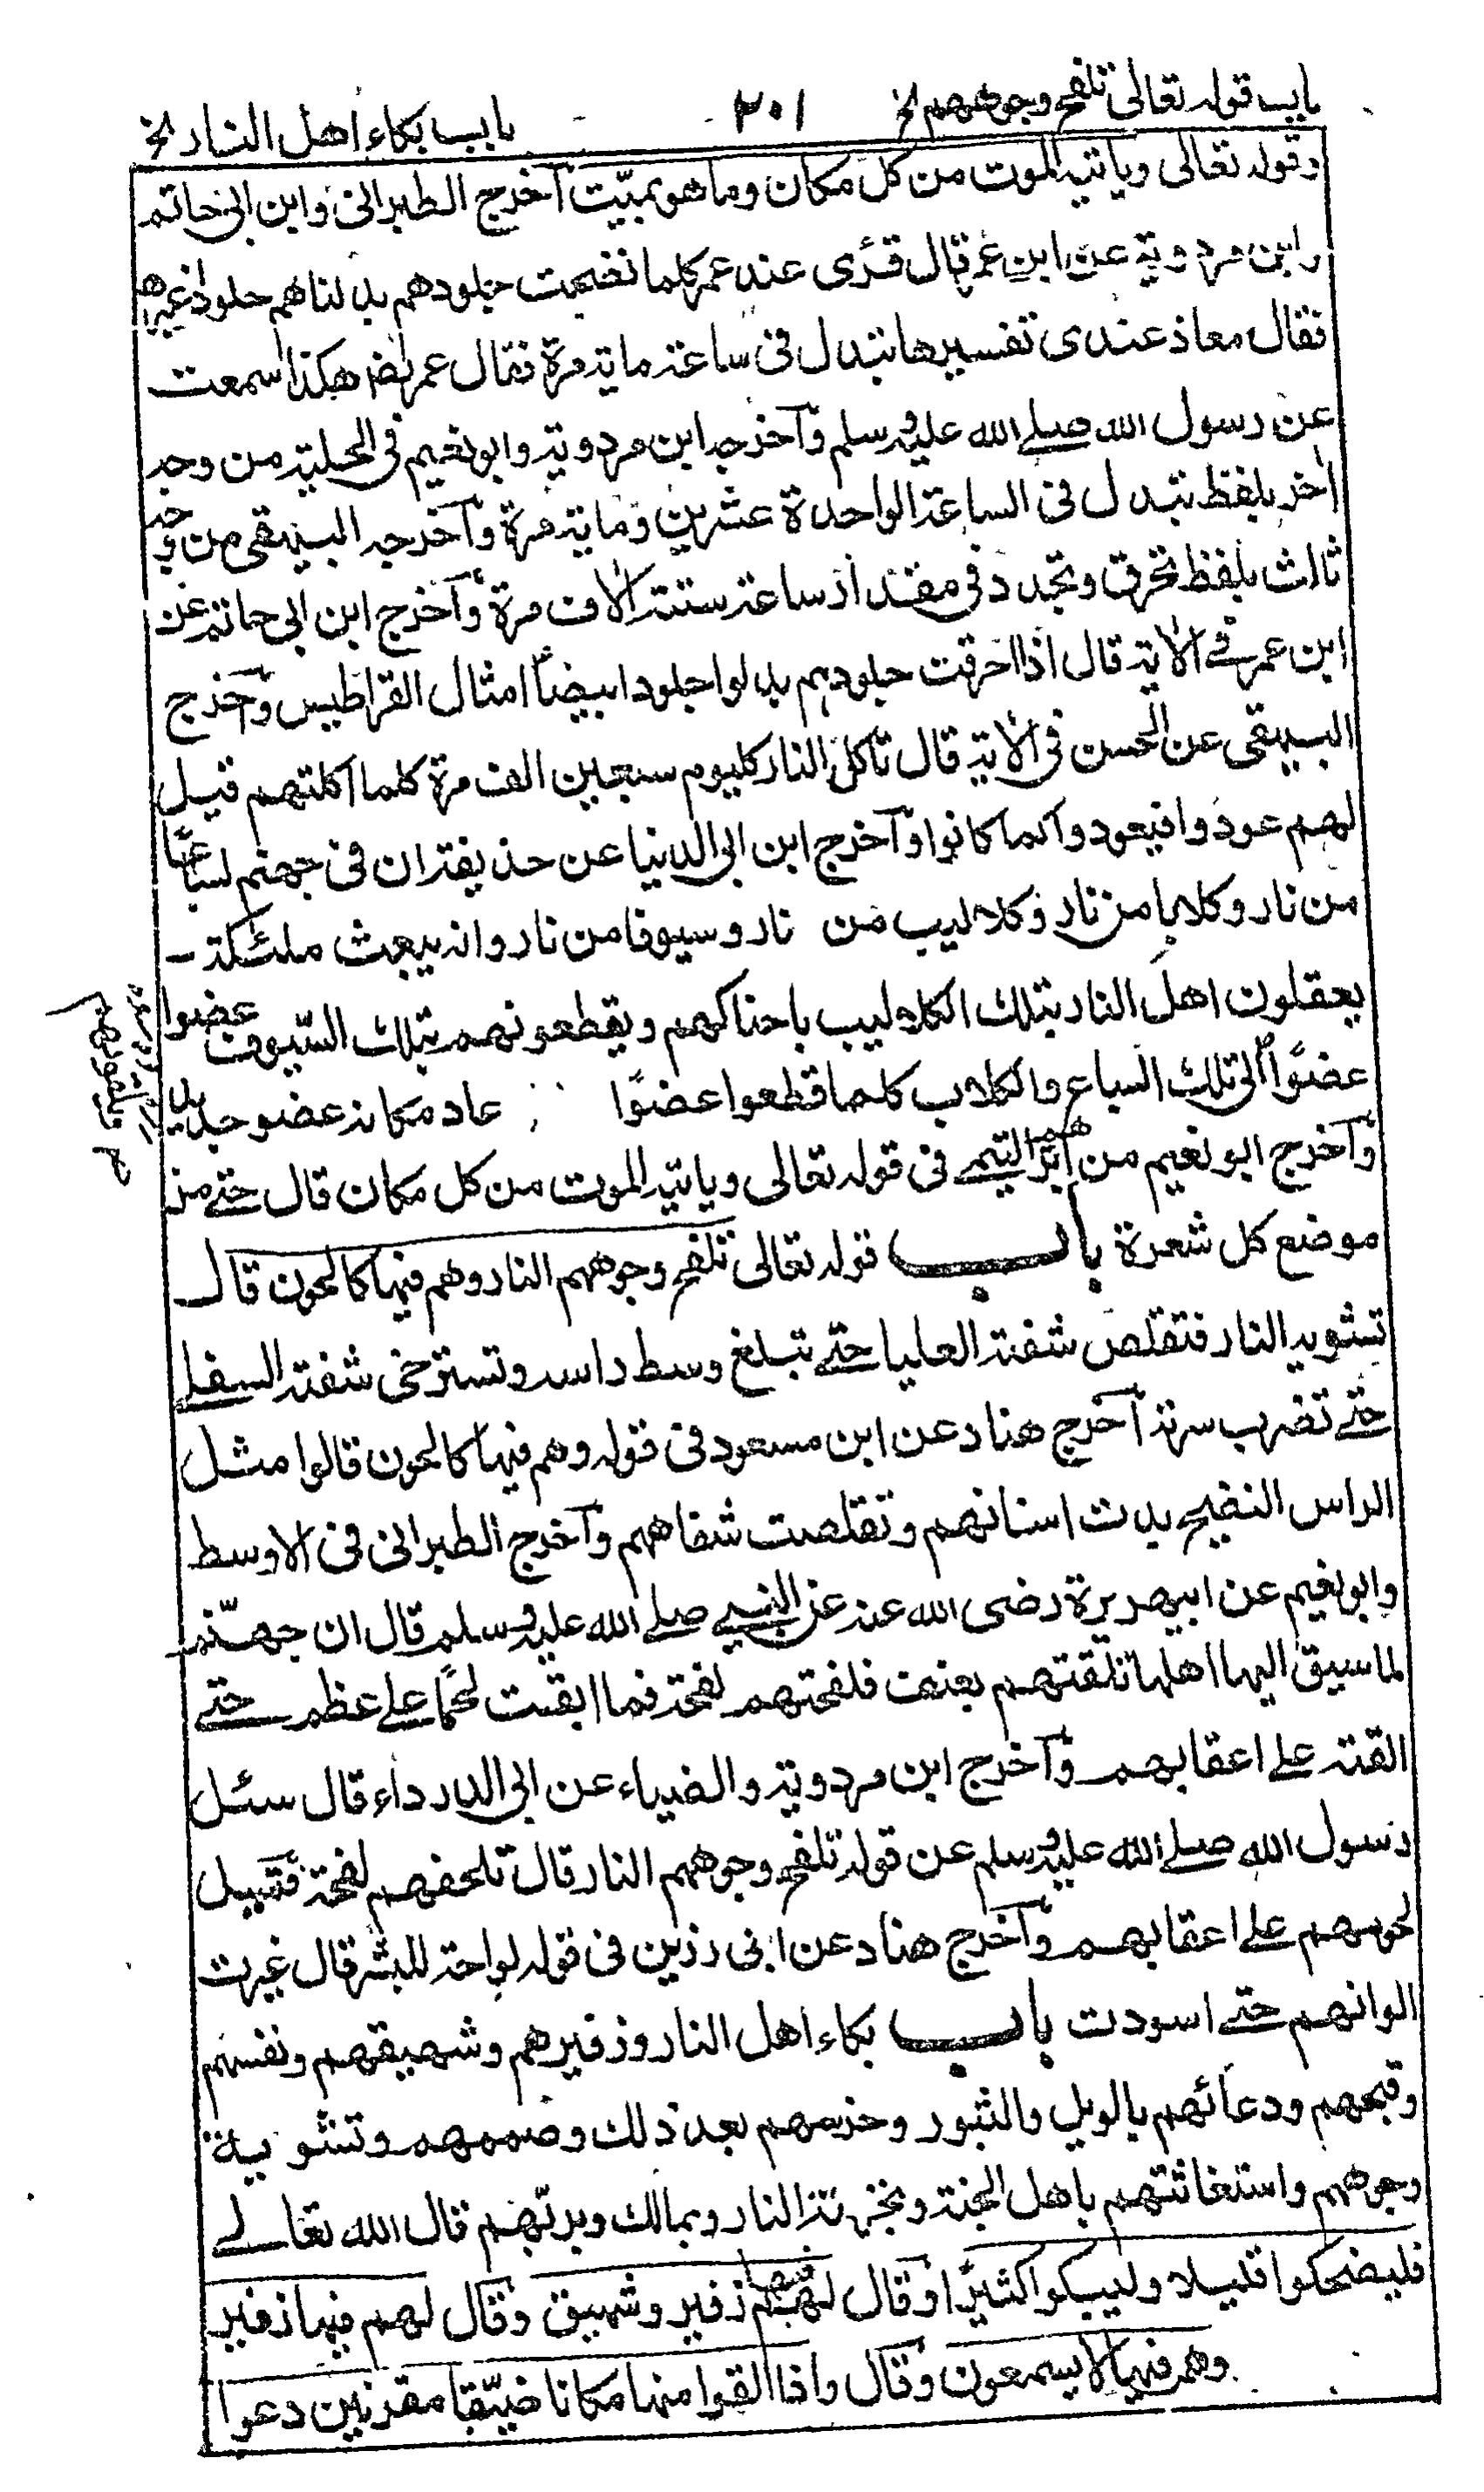 باب قوله تعالى تلفح وجوههم الخ ٢٠١ باب بكاء اهل النار الخ
وقوله تعالى وياتيه الموت من كل مكان وما هو بميّت آخرج الطبرانى وابن ابى حاتم
وابن مردوية عن ابن عمر قال قرئ عند عمر كلما نضجت جلودهم بدلناهم جلودا غيرها
فقال معاذ عندى تفسيرها تبدل فى ساعة مائة مرة فقال عمر رضـ هكذا سمعت
عن رسول الله صلے الله عليه وسلم وآخرجه ابن مردوية وابو نعيم فى الحلية من وجه
اٰخر بلفظ تبدل فى الساعة الواحدة عشرين ومائة مرة وآخرجه البيهقى من وجه
ثالث بلفظ تحرق وتجدد فى مقدار ساعة ستة اٰلاف مرة وآخرج ابن ابى حاتم عن
ابن عمر فے الاٰية قال اذا احرقت جلودهم بدلوا جلودا بيضاً امثال القراطيس وآخرج
البيهقى عن الحسن فى الاٰية قال تاكل النار كليوم سبعين الف مرة كلما اكلتهم قيل
لهم عودوا فيعودوا كما كانوا وآخرج ابن ابى الدنيا عن حذيفة ان فى جهنم لسباعًا
من نار وكلابا من نار وكلاليب من نار وسيوفا من نار وانه يبعث ملئكة
يعقلون اهل النار بتلك الكلاليب باحناكهم ويقطعونهم بتلك السّيوف عضوا
عضوًا الى تلك السباع والكلاب كلما قطعوا عضوًا عاد مكانه عضو جديد
وآخرج ابو نعيم من ابراهيم التيمے فى قوله تعالى وياتيه الموت من كل مكان قال حتے من
موضع كل شعرة باب قوله تعالى تلفح وجوههم النار وهم فيها كالحون قال
تشويه النار فتقلص شفته العليا حتے تبلغ وسط راسه وتسترخى شفته السفلے
حتے تضرب سرته آخرج هناد عن ابن مسعود فى قوله وهم فيها كالحون قالوا مثل
الراس النضيج بدت اسنانهم وتقلصت شفاههم وآخرج الطبرانى فى الاوسط
وابو نعيم عن ابيهريرة رضى الله عنه عن النبے صلے الله عليه وسلم قال ان جهنّم
لما سيق اليها اهلها تلقتهم بعنف فلفحتهم لفحة فما ابقت لحمًا علے عظم حتے
القته علے اعقابهم وآخرج ابن مردوية والضياء عن ابى الدرداء قال سئل
رسول الله صلے الله عليه وسلم عن قوله تلفح وجوههم النار قال تلحفهم لفحة فتسيل
لحومهم علے اعقابهم وآخرج هناد عن ابى رزين فى قوله لواحة للبشر قال غيرت
الوانهم حتے اسودت باب بكاء اهل النار وزفيرهم وشهيقهم ونفسهم
وقبحهم ودعائهم بالويل والثبور وخرسهم بعد ذلك وصممهم وتشوية
وجوههم واستغاثتهم باهل الجنة وبخزنة النار وبمالك وبربّهم قال الله تعالے
فليضحكوا قليلا وليبكوا كثيرًا وقال لهم فيها زفير وشهيق وقال لهم فيها زفير
وهم فيها لا يسمعون وقال واذا القوا منها مكانا ضيّقا مقرنين دعوا